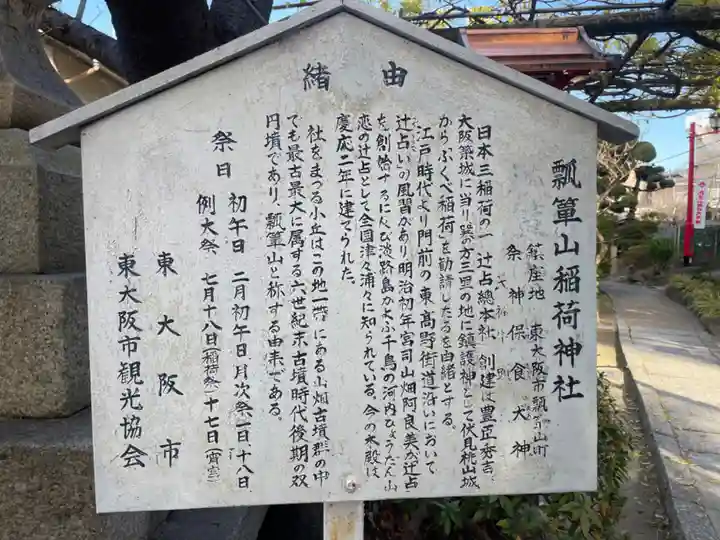 由緒
瓢箪山稲荷神社
鎮座地 東大阪市瓢箪山町
祭神 保食大神
日本三稲荷の一 辻占総本社 創建は豊臣秀吉、
大阪築城に当り巽の方三里の地に鎮護神として伏見桃山城
からふくべ稲荷を勧請したるを由緒とする。
江戸時代より門前の東高野街道沿いにおいて
辻占いの風習があり明治初年宮司山畑阿良美が辻占
を創始するに及び淡路島かよふ千鳥の河内ひょうたん山
恋の辻占として全国津々浦々に知られている。今の本殿は
慶応二年に建てられた。
社をまつる小丘はこの地一帯にある山畑古墳群の中
でも最古最大に属する六世紀末古墳時代後期の双
円墳であり、瓢箪山と称する由来である。
祭日 初午日 二月初午日 月次祭 一日、十八日
例大祭 七月十八日(稲荷祭)十七日(宵宮)
東大阪市
東大阪市観光協会